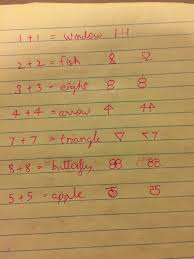 1 + 1 = window
2 + 2 = fish
3 + 3 = eight 8 8
4 + 4 = arrow 4 44
7 + 7 = triangle
8 + 8 = butterfly 88 88
5 + 5 = apple